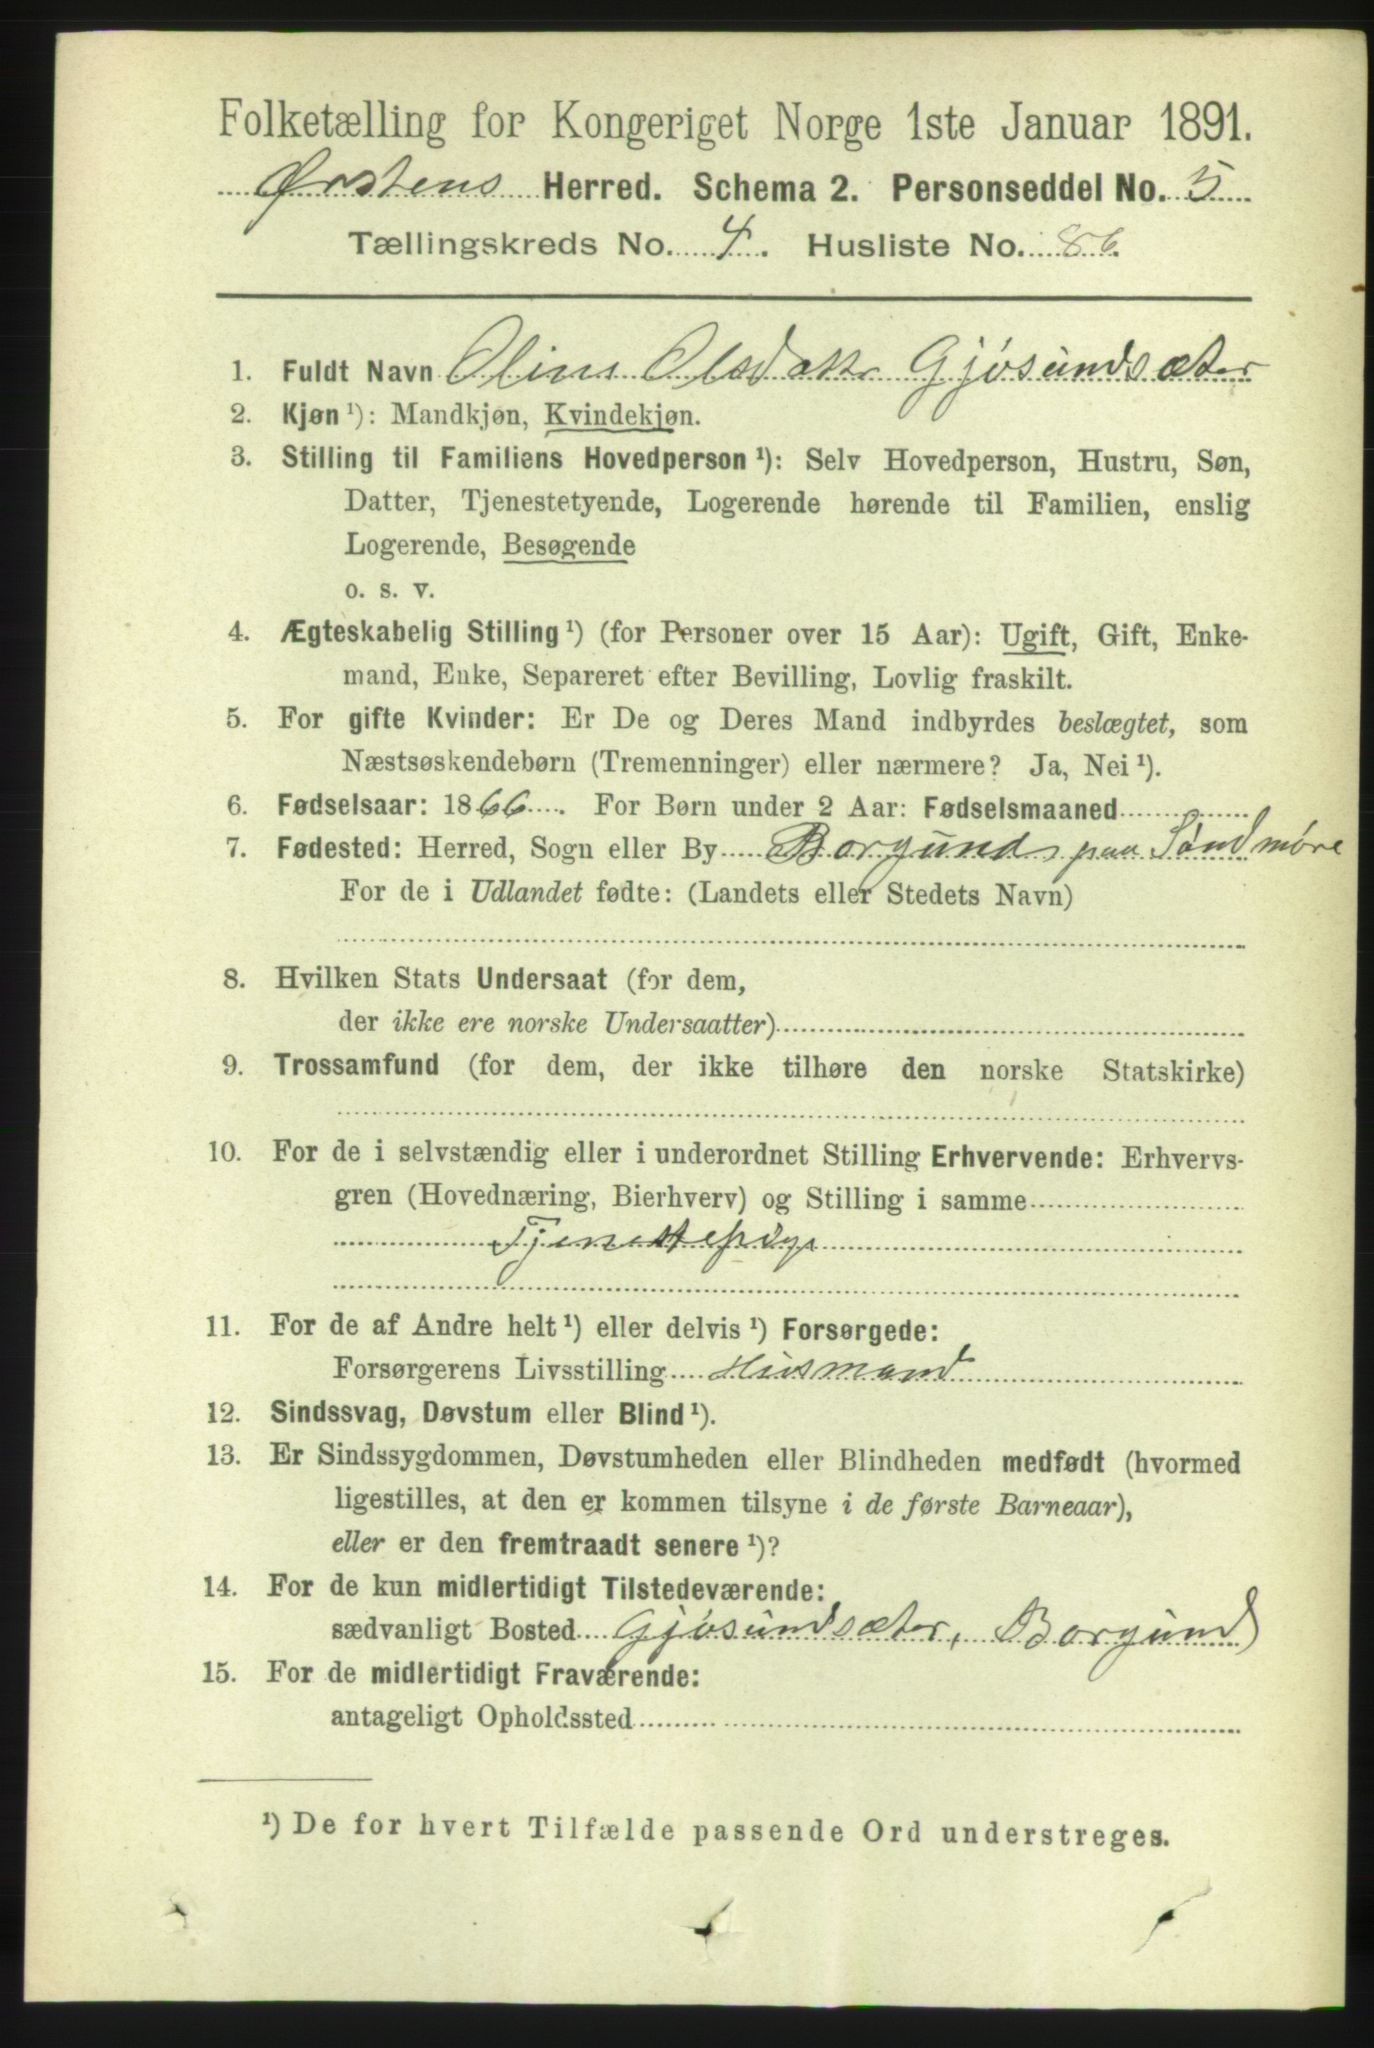 Folketælling for Kongeriget Norge 1ste Januar 1891.
Ørstens Herred. Schema 2. Personseddel No. 5
Tællingskreds No. 4. Husliste No. 86.
1. Fuldt Navn Oline Olsdatter Gjøsundsæter
2. Kjøn ¹): Mandkjøn, Kvindekjøn.
3. Stilling til Familiens Hovedperson ¹): Selv Hovedperson, Hustru, Søn,
Datter, Tjenestetyende, Logerende hørende til Familien, enslig
Logerende, Besøgende
o. s. v.
4. Ægteskabelig Stilling ¹) (for Personer over 15 Aar): Ugift, Gift, Enke-
mand, Enke, Separeret efter Bevilling, Lovlig fraskilt.
5. For gifte Kvinder: Er De og Deres Mand indbyrdes beslægtet, som
Næstsøskendebørn (Tremenninger) eller nærmere? Ja, Nei ¹).
6. Fødselsaar: 1866. For Børn under 2 Aar: Fødselsmaaned
7. Fødested: Herred, Sogn eller By Borgund paa Søndmøre
For de i Udlandet fødte: (Landets eller Stedets Navn)
8. Hvilken Stats Undersaat (for dem,
der ikke ere norske Undersaatter)
9. Trossamfund (for dem, der ikke tilhøre den norske Statskirke)
10. For de i selvstændig eller i underordnet Stilling Erhvervende: Erhvervs-
gren (Hovednæring, Bierhverv) og Stilling i samme
Tjenestepige
11. For de af Andre helt ¹) eller delvis ¹) Forsørgede:
Forsørgerens Livsstilling Husmand
12. Sindssvag, Døvstum eller Blind ¹).
13. Er Sindssygdommen, Døvstumheden eller Blindheden medfødt (hvormed
ligestilles, at den er kommen tilsyne i de første Barneaar),
eller er den fremtraadt senere ¹)?
14. For de kun midlertidigt Tilstedeværende:
sædvanligt Bosted Gjøsundsæter, Borgund
15. For de midlertidigt Fraværende:
antageligt Opholdssted
¹) De for hvert Tilfælde passende Ord understreges.